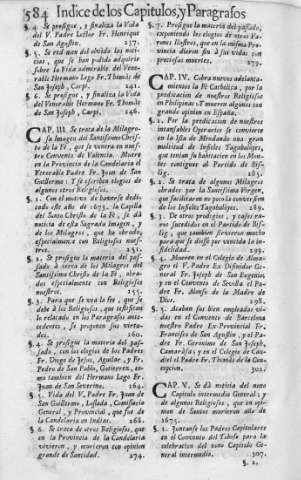 584 Indice de los Capitulos, y Paragrafos
§. 4. Se prosigue, y finaliza la Vida
del V. Padre Lector Fr. Henrique
de San Agustin. 237.
§. 5. Se dà una del olvido las noti-
cias, que se han podido adquirir
sobre la Vida admirable del Vene-
rable Hermano Lego Fr. Thomàs de
San Joseph, Carpi. 241.
§. 6. Se prosigue, y finaliza la Vida
del Venerable Hermano Fr. Thomàs
de San Joseph, Carpi. 246.
CAP. III. Se trata de la Milagro-
sa Imagen del Santissimo Christo
de la Fè, que se venera en nues-
tro Convento de Valencia. Muere
en la Provincia de la Candelaria el
Venerable Padre Fr. Juan de San
Guillermo: Y se escriben elogios de
algunos otros Religiosos.
§. 1. Con el motivo de haverse dedi-
cado año de 1673. la Capilla
del Santo Christo de la Fè, se dà
noticia de esta Sagrada Imagen, y
de los Milagros, que ha obrado,
especialmente con Religiosos nues-
tros. 251.
§. 2. Se prosigue la materia del pas-
sado à cerca de los Milagros del
Santissimo Christo de la Fè, obra-
dos especialmente con Religiosos
nuestros. 255.
§. 3. Para que se vea la fee, que se
debe à los Religiosos, que testifican
lo relatado en los Paragrafos ante-
cedentes, se proponen sus virtu-
des. 260.
§. 4. Se prosigue la materia del pas-
sado, con los elogios de los Padres
Fr. Diego de Jesus, Aguilar, y Fr.
Pedro de San Pablo, Gutierrez, co-
mo tambien del Hermano Lego Fr.
Juan de San Severino. 264.
§. 5. Vida del V. Padre Fr. Juan de
San Guillermo, Losada, Comissario
General, y Provincial, que fuè de
la Candelaria en Indias. 268.
§. 6. Se trata de otros Religiosos, que
en la Provincia de la Candelaria
vivieron, y murieron con opinion
grande de Santidad. 274.
§. 7. Prosigue la materia del passado,
exponiendo los elogios de otros Va-
rones Ilustres, que en la misma Pro-
vincia dieron fin à sus vidas con
preciosas muertes. 279.
CAP. IV. Cobra nuevos adelanta-
mientos la Fè Catholica, por la
predicacion de nuestros Religiosos
en Philipinas: Y mueren algunos con
grande opinion en España.
§. 1. Por la predicacion de nuestros
incansables Operarios se convierte
en la Isla de Mindanào una gran
multitud de Infieles Tagabalòyes,
que tenian su habitacion en los Mon-
tes contiguos al Partido de Bis-
lig. 285.
§. 2. Se trata de algunos Milagros
obrados por la Santissima Virgen,
que facilitaron no poco la conversion
de los Infieles Tagabalòyes. 289.
§. 3. De otros prodigios, y casos ra-
ros sucedidos en el Partido de Bis-
lig, que tambien sirvieron mucho
para que se diesse por vencida la in-
fidelidad. 293.
§. 4. Mueren en el Colegio de Almà-
gro el V. Padre Ex Difinidor Ge-
neral Fr. Joseph de San Eugenio,
y en el Convento de Sevilla el Pa-
dre Fr. Alonso de la Madre de
Dios. 298.
§. 3. Acaban sus bien empleadas vi-
das en el Convento de Barcelona
nuestro Padre Ex-Provincial Fr.
Francisco de San Agustin, y el Pa-
dre Fr. Geronimo de San Joseph,
Camarasas, y en el Colegio de Cau-
diel el Padre Fr. Thomàs de la Con-
cepcion. 302.
CAP. V. Se dà noticia del nono
Capitulo intermedio General, y
de algunos Religiosos, que en opi-
nion de Santos murieron año de
1675.
§. 1. Juntanse los Padres Capitulares
en el Convento del Toboso para la
celebracion del nono Capitulo Ge-
neral intermedio. 307.
§. 2.